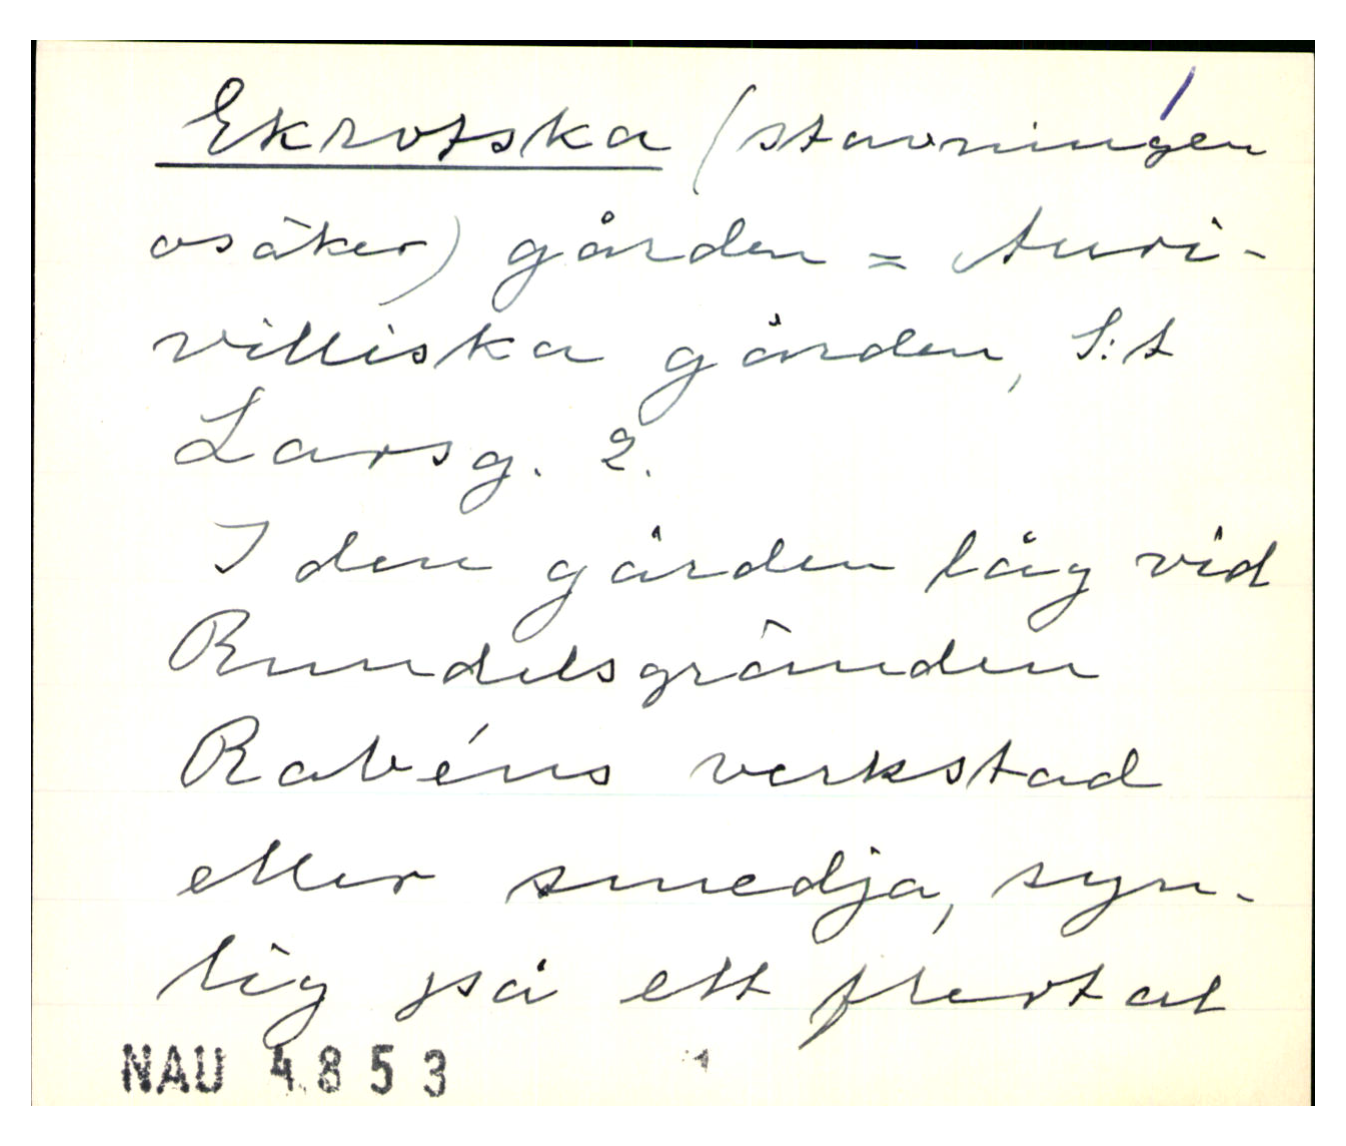 Ekrotska (stavningen
osäker) gården = Auri-
villiska gården, S:t
Larsg. 2.
I den gården låg vid
Rundelsgränden
Rabéns verkstad
eller smedja, syn-
lig på ett flertal
NAU 4853 1